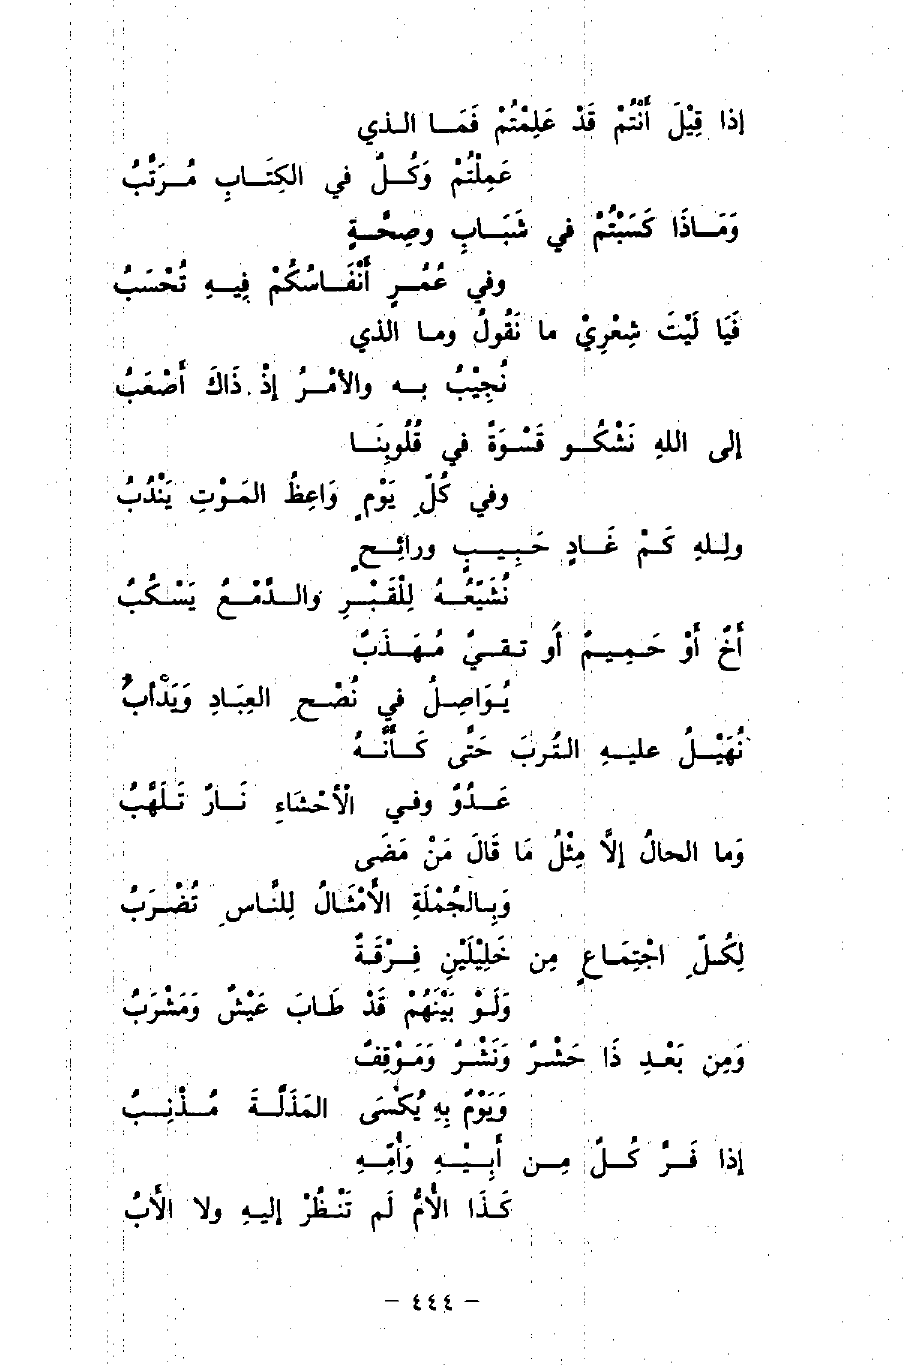 إذا قِيْلَ أَنْتُمْ قَدْ عَلِمْتُمْ فَمَا الذي
عَمِلْتُمْ وَكُلٌّ في الكِتَابِ مُرَتَّبُ
وَمَاذَا كَسَبْتُمْ في شَبَابٍ وصِحَّةٍ
وفي عُمُرٍ أَنْفَاسُكُمْ فِيهِ تُحْسَبُ
فَيَا لَيْتَ شِعْرِيْ ما نَقُولُ وما الذي
نُجِيْبُ به والأمْرُ إذْ ذَاكَ أَصْعَبُ
إلى اللهِ نَشْكُو قَسْوَةً في قُلُوبِنَا
وفي كُلِّ يَوْمٍ وَاعِظُ المَوْتِ يَنْدُبُ
وللهِ كَمْ غَادٍ حَبِيبٍ ورائِحٍ
نُشَيِّعُهُ لِلْقَبْرِ والدَّمْعُ يَسْكُبُ
أَخٌ أَوْ حَمِيمٌ أَو تقيٌّ مُهَذَّبٌ
يُوَاصِلُ في نُصْحِ العِبَادِ وَيَدْأَبُ
نُهَيْلُ عليهِ التُرْبَ حَتَّى كَأَنَّهُ
عَدُوٌّ وفي الْأَحْشَاءِ نَارٌ تَلَهَّبُ
وَما الحالُ إلَّا مِثْلُ مَا قَالَ مَنْ مَضَى
وَبِالجُمْلَةِ الأَمْثَالُ لِلنَّاسِ تُضْرَبُ
لِكُلِّ اجْتِمَاعٍ مِن خَلِيْلَيْنِ فِرْقَةٌ
وَلَوْ بَيْنَهُمْ قَدْ طَابَ عَيْشٌ وَمَشْرَبُ
وَمِن بَعْدِ ذَا حَشْرٌ وَنَشْرٌ وَمَوْقِفٌ
وَيَوْمٌ بِهِ يُكْسَى المَذَلَّةَ مُذْنِبُ
إذا فَرَّ كُلٌّ مِن أَبِيْهِ وَأُمِّهِ
كَذَا الأُمُّ لَم تَنْظُرْ إليهِ ولا الأَبُ
- ٤٤٤ -